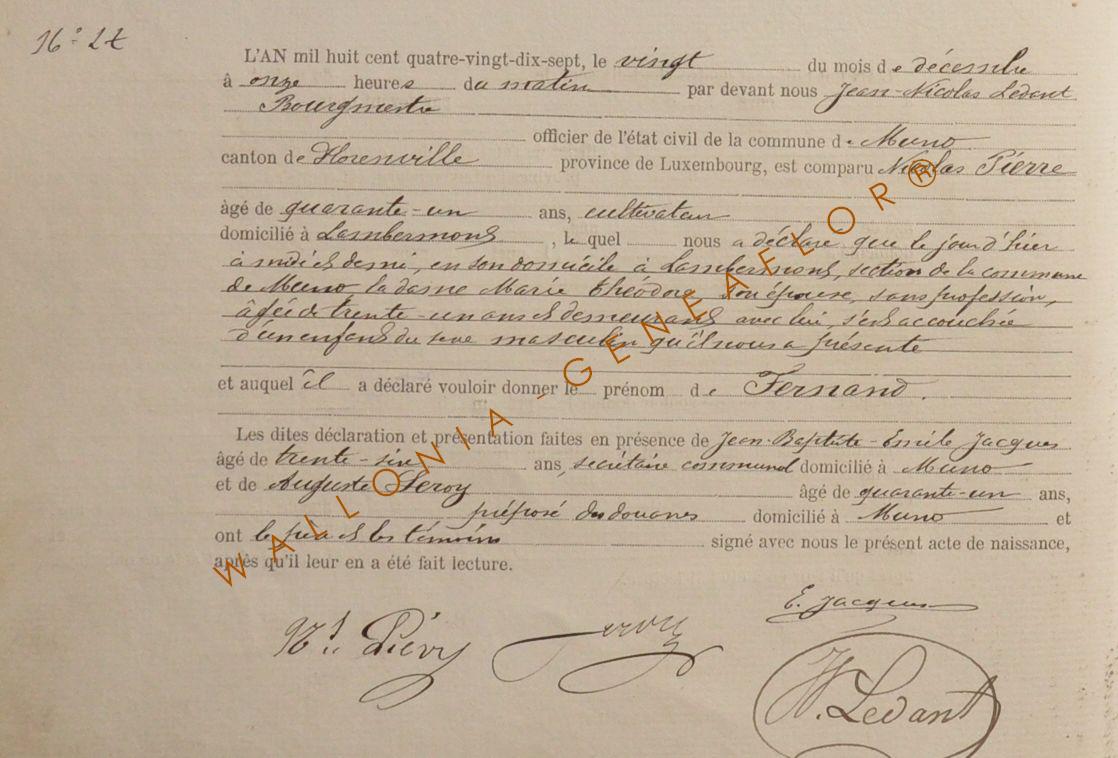 N° 27
L'AN mil huit cent quatre-vingt-dix-sept, le vingt du mois de décembre
à onze heures du matin par devant nous Jean-Nicolas Ledant
Bourgmestre
officier de l'état civil de la commune de Muno
canton de Florenville province de Luxembourg, est comparu Nicolas Piérre
âgé de quarante-un ans, cultivateur
domicilié à Lambermont, lequel nous a déclaré que le jour d'hier
à midi et demi, en son domicile à Lambermont, section de la commune
de Muno la dame Marie Théodore, son épouse, sans profession,
âgée de trente-un ans et demeurant avec lui, s'est accouchée
d'un enfant du sexe masculin qu'il nous a présenté
et auquel il a déclaré vouloir donner le prénom de Fernand.
Les dites déclaration et présentation faites en présence de Jean-Baptiste-Emile Jacques
âgé de trente-six ans, secrétaire communal domicilié à Muno
et de Auguste Leroy âgé de quarante-un ans,
préposé des douanes domicilié à Muno et
ont le père et les témoins signé avec nous le présent acte de naissance,
après qu'il leur en a été fait lecture.
WALLONIA - GENEAFLOR®
E. Jacques
Leroy
N. Ledant